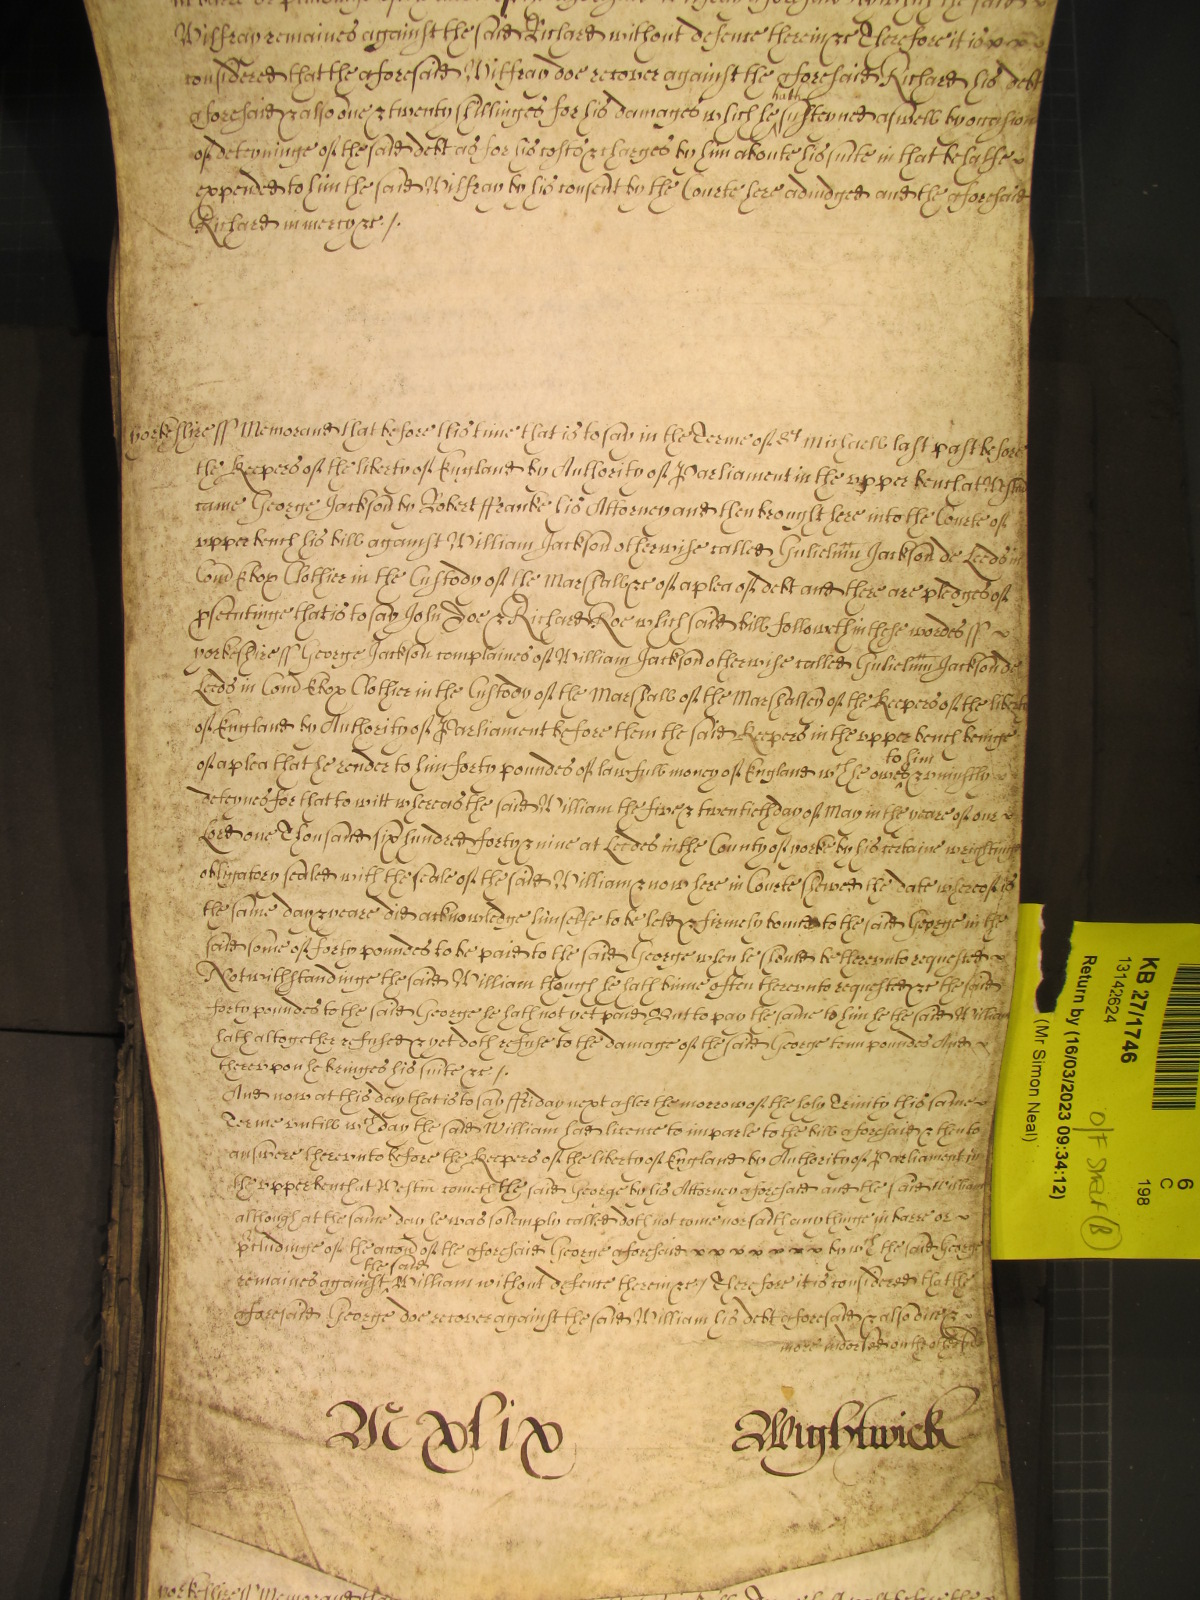 Wilfray remaines against the said Richard without defence therein &c Therefore it is
considered that the aforesaid Wilfray doe recover against the aforesaid Richard his debt
aforesaid & also one & twenty shillinges for his damages which he hath susteyned aswell by occasion
of deteyninge of the said debt as for his costs & charges by him aboute his suite in that behalfe
expended to him the said Wilfray by his consent by the Courte here adiudged and the aforesaid
Richard in mercy &c ./.
Yorkeshire ss Memorand that before this time that is to say in the Terme of St Michaell last past before
the Keepers of the liberty of England by Authority of Parliament in the upper bench at Westm
came George Jackson by Robert ffranke his Attorney and then brought here into the Courte of
upper bench his bill against William Jackson otherwise called Gulielmu Jackson de Leeds in
Com Ebor Clothier in the Custody of the Marshall &c of a plea of debt and there are pledges of
psecutinge that is to say John Doe & Richard Roe which said bill followeth in these wordes ss
Yorkeshire ss George Jackson complaines of William Jackson otherwise called Gulielmu Jackson de
Leeds in Com Ebor Clothier in the Custody of the Marshall of the Marshalsey of the Keepers of the liberty
of England by Authority of Parliament before them the said Keepers in the upper bench beinge
of a plea that he render to him forty poundes of lawfull money of England wch he owes to him & uniustly
deteynes for that to witt whereas the said William the five & twentieth day of May in the yeare of our
Lord one Thousand six hundred forty & nine at Leedes in the County of yorke by his certaine wrightinge
obligatory sealed with the seale of the said William & now here in Courte shewed the date whereof is
the same day & yeare did acknowledge himselfe to be held & firmely bound to the said George in the
said some of forty poundes to be paid to the said George when he should be thereunto requested
Notwithstandinge the said William though he hath binne often thereunto requested &c the said
forty poundes to the said George he hath not yet paid But to pay the same to him he the said William
hath altogether refused & yet doth refuse to the damage of the said George tenn poundes And
thereupon he bringes his suite &c ./.
And now at this day that is to say ffriday next after the morrow of the holy Trinity this same
Terme untill wch day the said William had licence to imparle to the bill aforesaid & then to
answere thereunto before the Keepers of the liberty of England by Authority of Parliament in
the upper bench at Westm cometh the said George by his Attorney aforesaid and the said William
although at the same day he was solemply called doth not come nor saith any thinge in barre or
pcludinge of the accon of the aforesaid George aforesaid by wch the said George
remaines against the said William without defence therein &c / Therefore it is considered that the
aforesaid George doe recover against the said William his debt aforesaid & also
more indorsed on the other side
Mc xlix Wightwick
yorkeshire ss Memorand tha
KB 27/1746
13142624
Return by (16/03/2023 09:34:12)
(Mr Simon Neal)
6
C
198